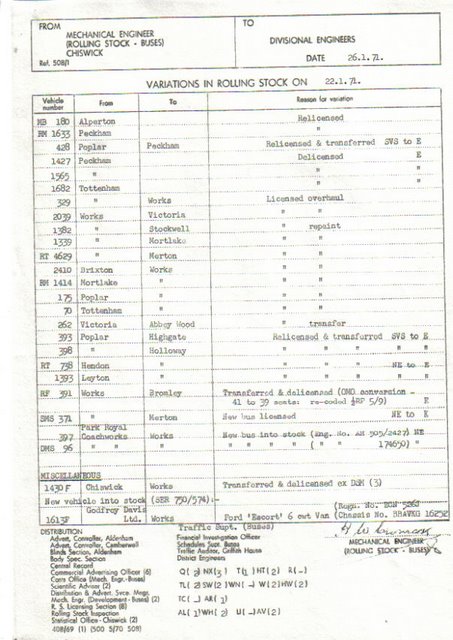 FROM
MECHANICAL ENGINEER
(ROLLING STOCK - BUSES)
CHISWICK
Ref. 508/1
TO
DIVISIONAL ENGINEERS
DATE 26.1.71.
VARIATIONS IN ROLLING STOCK ON 22.1.71.
Vehicle number From To Reason for variation
MB 180 Alperton Relicensed
RM 1633 Peckham "
428 Poplar Peckham Relicensed & transferred SVS to E
1427 Peckham Delicensed E
1565 " " "
1682 Tottenham " "
329 " Works Licensed overhaul
2039 Works Victoria " "
1382 " Stockwell " " repaint
1339 " Mortlake " "
RT 4629 " Merton " "
2410 Brixton Works " "
RM 1414 Mortlake " " "
175 Poplar " " "
70 Tottenham " " "
262 Victoria Abbey Wood " transfer
393 Poplar Highgate Relicensed & transferred SVS to E
398 " Holloway " " " " " "
RT 738 Hendon " " " " NE to E
1393 Leyton " " " " " " "
RF 391 Works Bromley Transferred & delicensed (OMO conversion -
41 to 39 seats: re-coded ½RF 5/9) E
SMS 371 " Merton New bus licensed NE to E
397 Park Royal Coachworks Works New bus into stock (Eng. No. AH 505/2427) NE
DMS 96 " " " " " " " ( " " 174650) "
MISCELLANEOUS
1430 F Chiswick Works Transferred & delicensed ex DSM (3)
New vehicle into stock (SER 750/574):-
1613F Godfrey Davis Ltd. Works Ford 'Escort' 6 cwt Van (Chassis No. BBAVKG 16252
(Regn. No.
DISTRIBUTION
Advert. Controller, Aldenham
Advert. Controller, Camberwell
Blinds Section, Aldenham
Body Sonic Section
Central Record
Commercial Advertising Officer (6)
Costs Office (Mech. Engr.-Buses)
Scientific Advisor (2)
Distribution & Advert. Svce. Mngr.
Mech. Engr. (Development - Buses) (2)
R. S. Licensing Section (8)
Rolling Stock Inspection
Statistical Office - Chiswick (2)
408/69 (1) (500 5/70 508)
Traffic Supt. (Buses)
Financial Investigation Officer
Schedules Supt. Buses
Traffic Auditor, Griffith House
District Engineers
Q(2)NX(3) T(1)HT(2) R(-)
TL(2)SW(2)WN(-) W(2)HW(2)
TC(-) AR(1)
AL(1)WH(2) U(-)AV(2)
MECHANICAL ENGINEER
(ROLLING STOCK - BUSES)